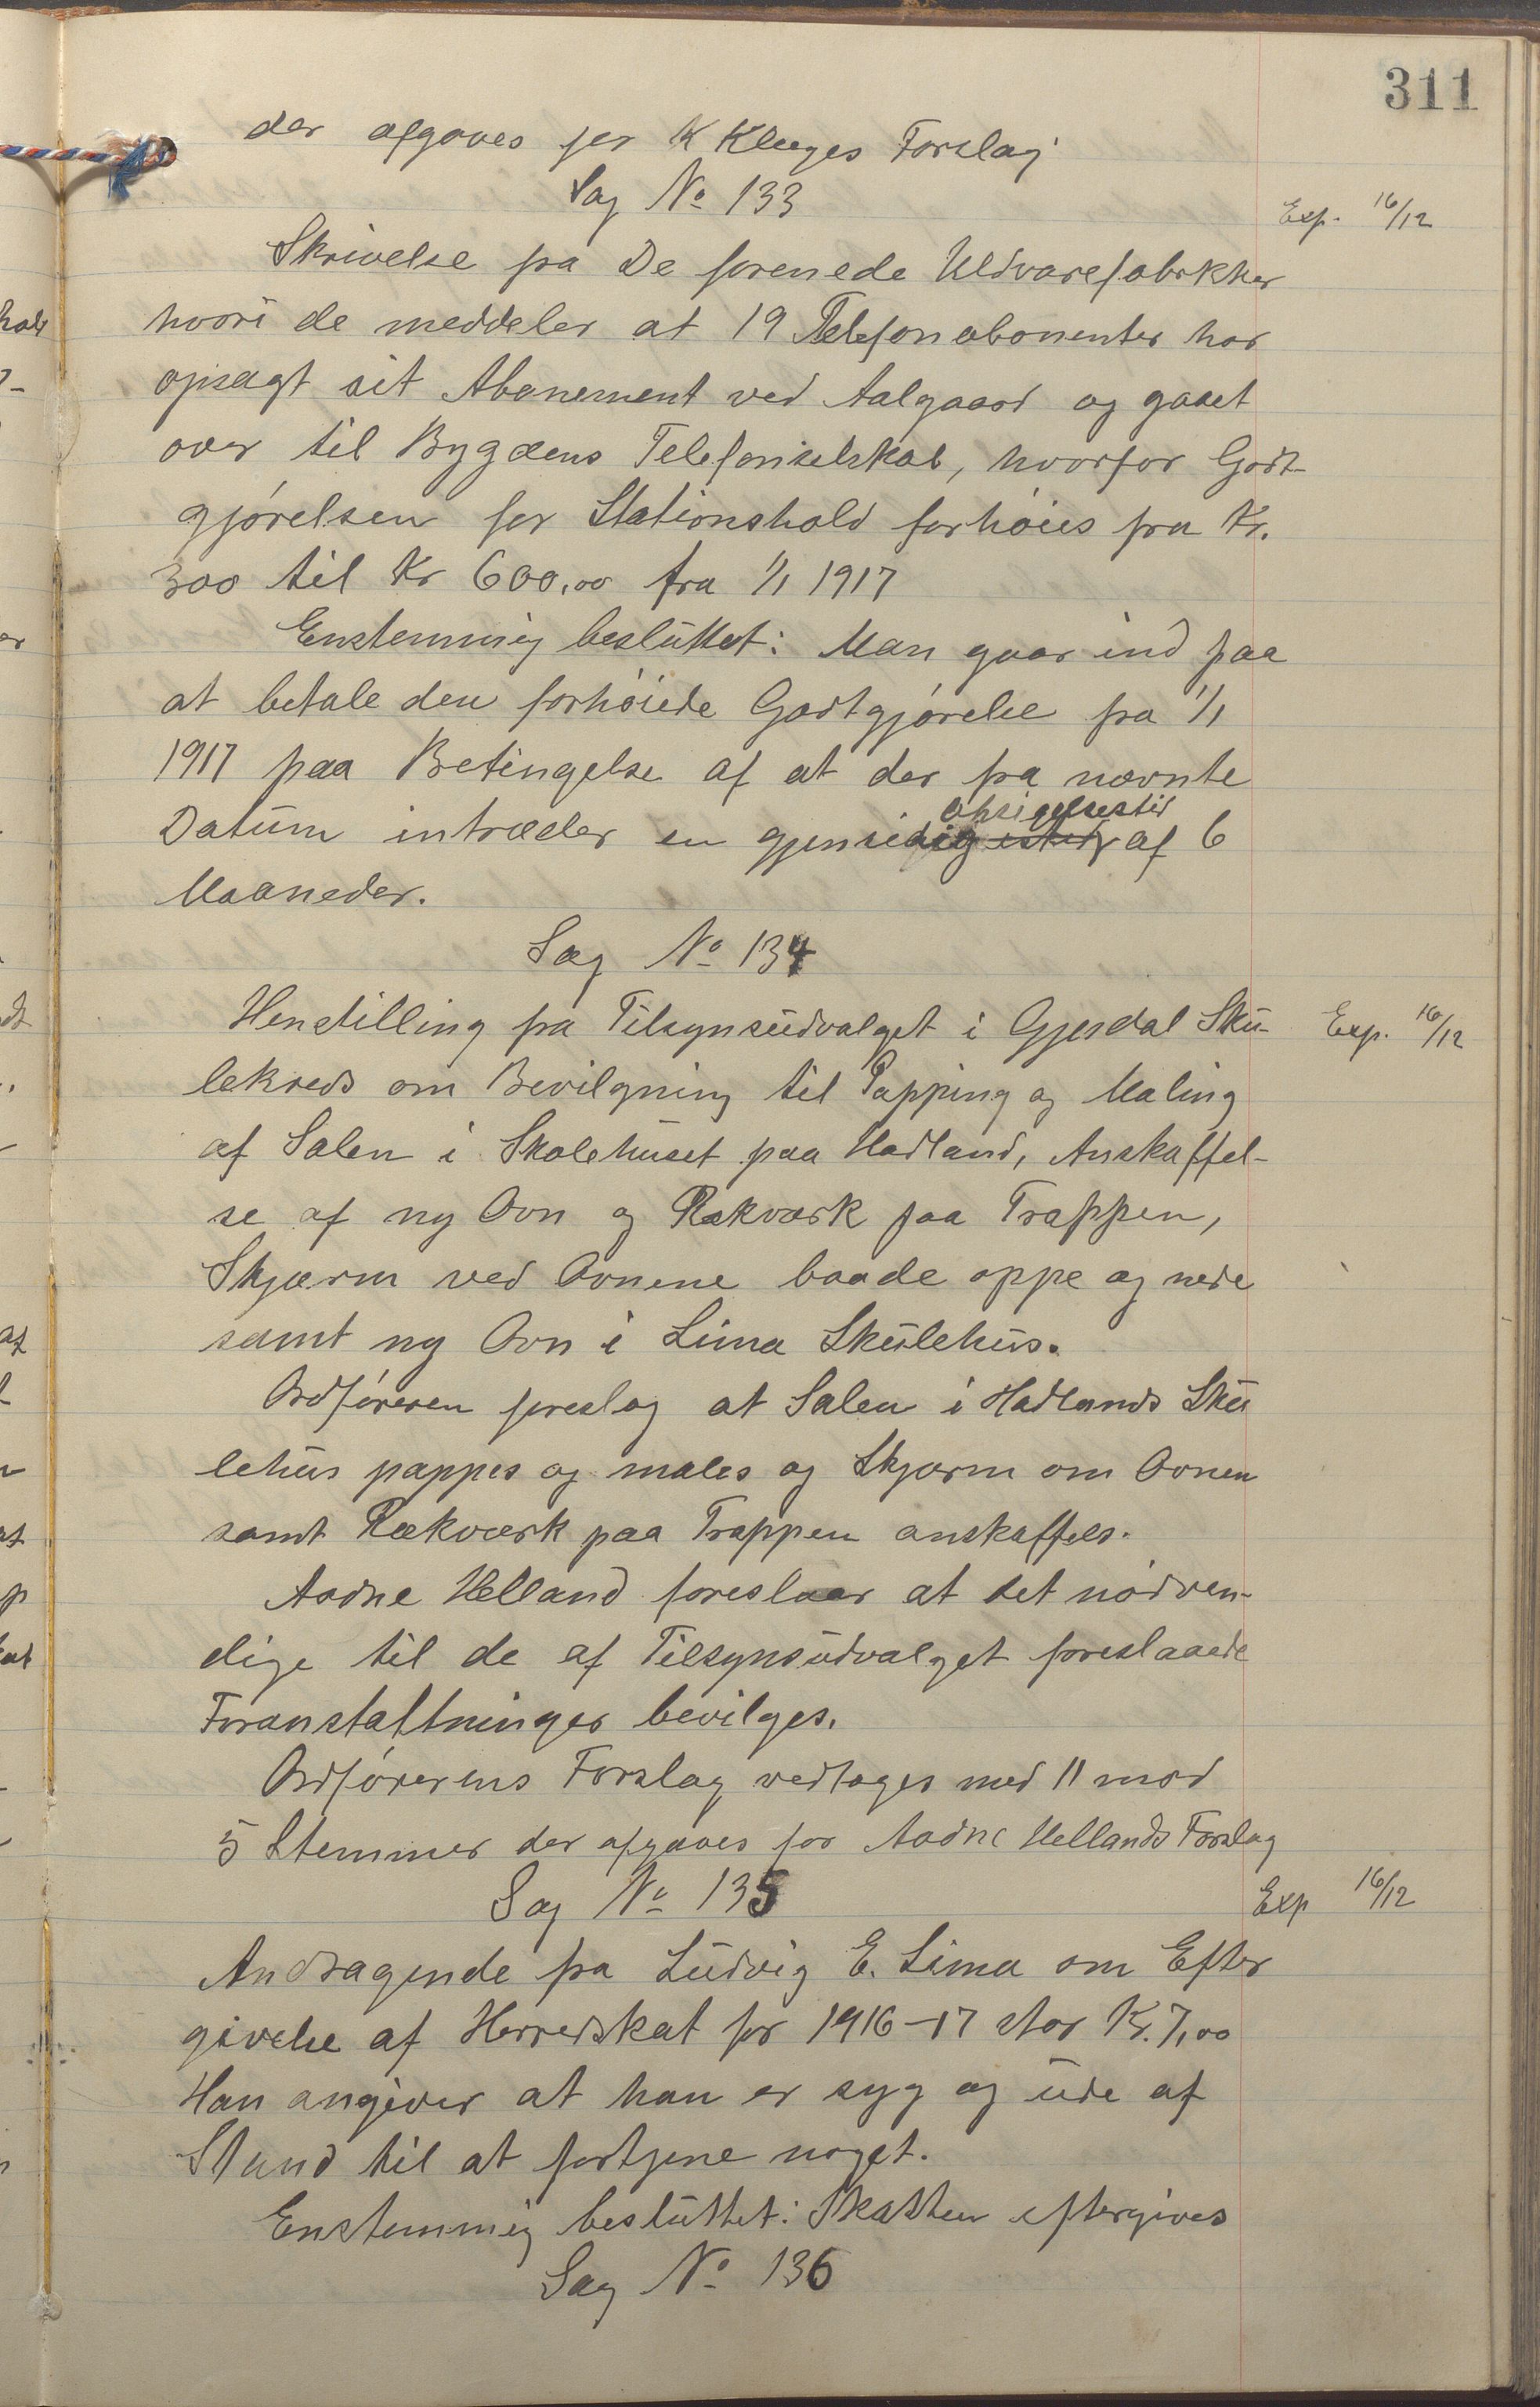 311
der afgaves for K Kluges Forslag
Sag No 133
Exp. 16/12
Skrivelse fra De forenede Uldvarefabrkker
hvori de meddeler at 19 Telefonabonenter har
opsagt sit Abonement ved Aalgaard og gaaet
over til Bygdens Telefonselskab, hvorfor Godt-
gjørelsen for Stationshold forhøies fra Kr.
300 til Kr 600,00 fra 1/1 1917
Enstemmig besluttet: Man gaar ind paa
at betale den forhøiede Godtgjørelse fra 1/1
1917 paa Betingelse af at der fra nævnte
opsigelsestid
Datum intræder en gjensidig af 6
Maaneder.
Sag No 134
Henstilling fra Tilsynsudvalget i Gjesdal Sku-
Exp. 16/12
lekreds om Bevilgning til Papping og Maling
af Salen i Skolehuset paa Hadland, Anskaffel-
se af ny Ovn og Rækværk paa Trappen,
Skjærm ved Ovnene baade oppe og nede
samt ny Ovn i Lima Skulehus.
Ordføreren foreslog at Salen i Hadlands Sku
lehus pappes og males og Skjærm om Ovnen
samt Rækværk paa Trappen anskaffels.
Aadne Helland foreslaar at det nødven-
dige til de af Tilsynsudvalget foreslaaede
Foranstaltninger bevilges.
Ordførerens Forslag vedtoges med 11 mod
5 Stemmer der afgaves for Aadne Hellands Forslag
Sag No 135
Exp 16/12
Andragende fra Ludvig E. Lima om Efter
givelse af Herredskat for 1916-17 stor Kr. 7,00
Han angiver at han er syg og ude af
Stand til at fortjene noget.
Enstemmig besluttet: Skatten eftergives
Sag No 136